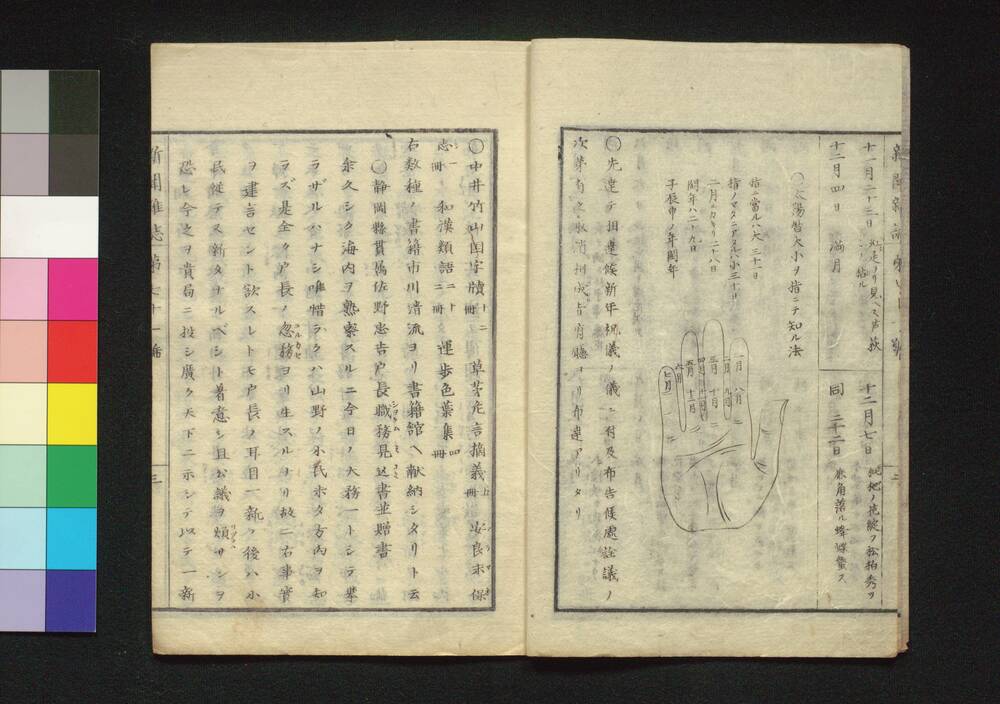 十一月二十二日
十二月四日 満月
十二月七日
同 二十二日 麋角落ル
○太陽暦大小ヲ指ニテ知ル法
指ニ當ルハ大三十一日
指ノマタニアタルハ小三十日
二月ニカギリ二十八日
閏年ハ二十九日
子辰申ノ年閏年
一月 八月
二月 九月
三月 十月
四月 十一月
五月 十二月
六月
七月
○先達テ相達候新年祝儀ノ儀ニ付及布告候處詮議ノ
次第有之取消
達アリタリ
○中井竹山国字牘十二冊 草茅危言摘義五冊 安良末保
志一冊 和漢類語二十二冊 運歩色葉集四冊
右数種ノ書籍市川清流ヨリ書籍館ヘ献納シタリト云
○静岡縣貫属佐野惠吉戸長職務見込書並贈書
余久シク海内ヲ熟察スルニ今日ノ大務一トシテ擧
ラザルハナシ唯惜ラクハ山野ノ小民未タ方向ヲ知
ラズ是全ク戸長ノ忽務ヨリ生スルノリ故ニ右事實
ヲ建言セント欲スレトモ戸長ノ耳目一新ノ後ハ小
民従テ又新タナルベシト着意シ且公議ヲ煩サンヲ
恐レ今之ヲ貴局ニ投シ廣ク天下ニ示シテ以テ一新
新聞雑誌第七十一号 三